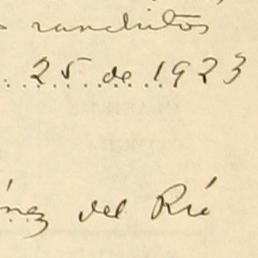 ranchitos
25 de 1923
ínez del Rio